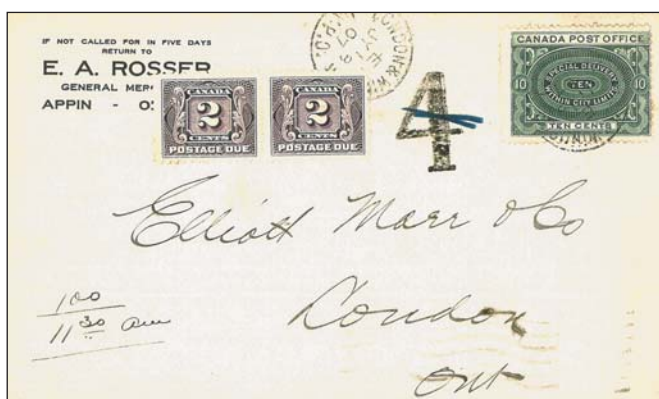 IF NOT CALLED FOR IN FIVE DAYS
RETURN TO
E. A. ROSSER
GENERAL MER
APPIN - O
CANADA
2
CENTS
POSTAGE DUE
CANADA
2
CENTS
POSTAGE DUE
LONDON &
JY 19
07
4
CANADA POST OFFICE
SPECIAL DELIVERY
10 TEN 10
WITHIN CITY LIMITS
TEN CENTS
Elliott Marr & Co
London
Ont
100
11 30 am